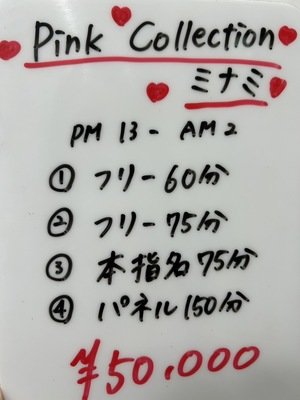 Pink Collection
ミナミ
PM 13 - AM 2
① フリー 60分
② フリー 75分
③ 本指名 75分
④ パネル 150分
¥50.000